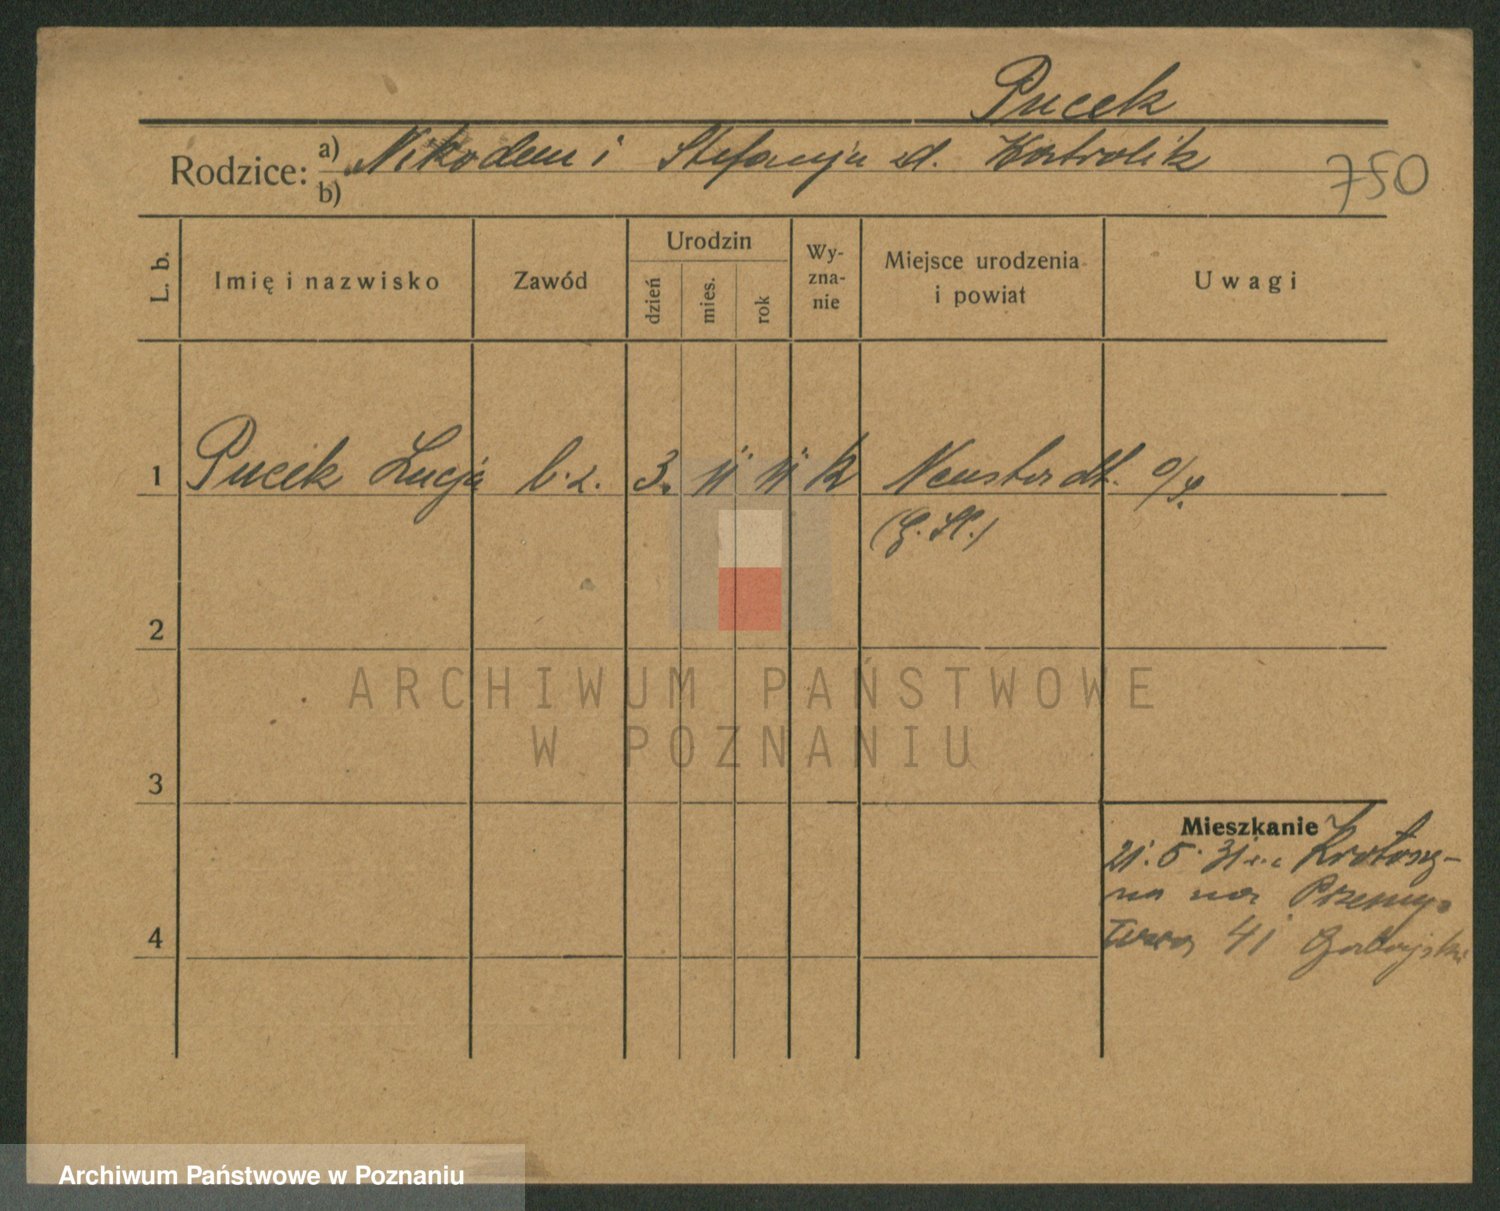 Pucek
Rodzice: a) Nikodem i Stefanja d.
b)
750
L. b.
Imię i nazwisko
Zawód
Urodzin
dzień
mies.
rok
Wy-
zna-
nie
Miejsce urodzenia
i powiat
Uwagi
1 Pucek Lucja b. z. 3. 11 11 k Neustadt. o/s.
(G. Sl.)
2
3
4
Mieszkanie
21. 5. 31 Krotoszy-
na na Przemy-
41
ARCHIWUM PAŃSTWOWE
W POZNANIU
Archiwum Państwowe w Poznaniu